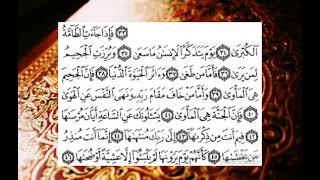 ٣٣ فَإِذَا جَآءَتِ ٱلطَّآمَّةُ
ٱلْكُبْرَىٰ ٣٤ يَوْمَ يَتَذَكَّرُ ٱلْإِنسَٰنُ مَا سَعَىٰ ٣٥ وَبُرِّزَتِ ٱلْجَحِيمُ
لِمَن يَرَىٰ ٣٦ فَأَمَّا مَن طَغَىٰ ٣٧ وَءَاثَرَ ٱلْحَيَوٰةَ ٱلدُّنْيَا ٣٨ فَإِنَّ ٱلْجَحِيمَ
هِىَ ٱلْمَأْوَىٰ ٣٩ وَأَمَّا مَنْ خَافَ مَقَامَ رَبِّهِۦ وَنَهَى ٱلنَّفْسَ عَنِ ٱلْهَوَىٰ
٤٠ فَإِنَّ ٱلْجَنَّةَ هِىَ ٱلْمَأْوَىٰ ٤١ يَسْـَٔلُونَكَ عَنِ ٱلسَّاعَةِ أَيَّانَ مُرْسَىٰهَا
٤٢ فِيمَ أَنتَ مِن ذِكْرَىٰهَآ ٤٣ إِلَىٰ رَبِّكَ مُنتَهَىٰهَآ ٤٤ إِنَّمَآ أَنتَ مُنذِرُ
مَن يَخْشَىٰهَا ٤٥ كَأَنَّهُمْ يَوْمَ يَرَوْنَهَا لَمْ يَلْبَثُوٓا۟ إِلَّا عَشِيَّةً أَوْ ضُحَىٰهَا ٤٦